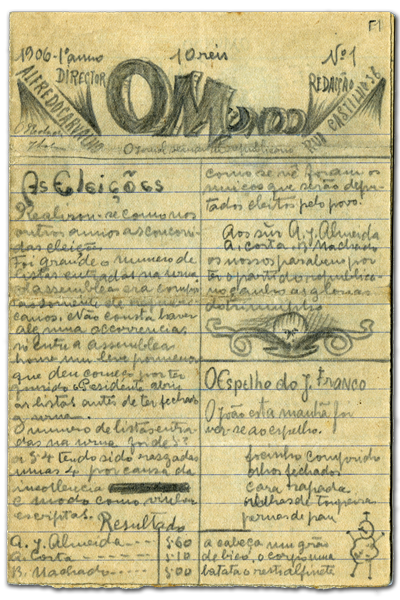 F1
1906-1º anno
10 reis
Nº1
DIRECTOR
ALFREDO CARVALHO
REDAÇÃO
RUA CASTILHO
O jornal semanal republicano
As Eleições
Realisou-se como nos
outros annos as concorri-
das eleição.
Foi grande o numero de
listas entradas na urna
a assemblea era
somente de republi-
canos. Não consta haver
alguma occorrencia,
si entre a assemblea
houve um leve
que deu começo por ter
o Presidente abrir
as listas antes de ter fechado
a urna.
O numero de listas entra-
das na urna foi de 53
a 54 tendo sido rasgadas
umas 4 por causa da
insolencia
e modo como
escriptas.
Resultado
A. J. Almeida 560
A. Costa 510
B. Machado 500
como se vê foram os
unicos que serão depu-
tados eleitos pelo povo.
Aos snrs A. J. Almeida
A. Costa B. Machado
os nossos parabens por
ter o partido republica-
no ganho as glorias
do triumpho
O Espelho do J. Franco
O João esta manhã foi
ver-se ao espelho.
focinho comprido
olhos fechados
cara rapada
orelhas de toupeira
pernas de pau
a cabeça um grão
de bico, o corpo uma
batata o resto alfinete